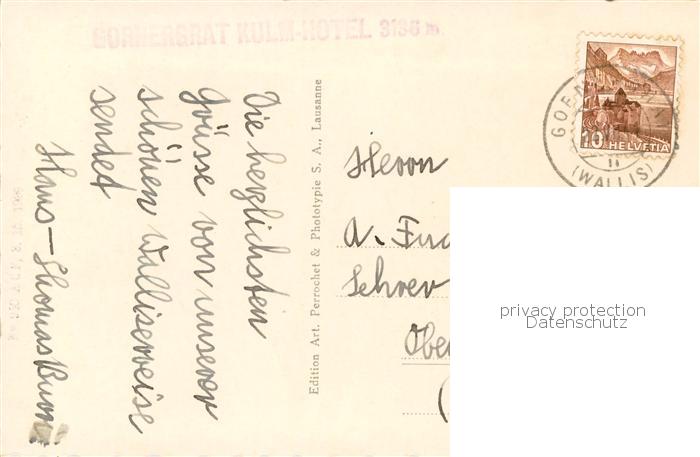 GORNERGRAT KULM-HOTEL 3136 m.
Die herzlichsten
Grüsse von unserer
schönen Walliserreise
sendet
Hans-Thomas
Edition Art. Perrochet & Phototypie S. A., Lausanne
10 HELVETIA
(WALLIS)
Herrn
A.
privacy protection
Datenschutz